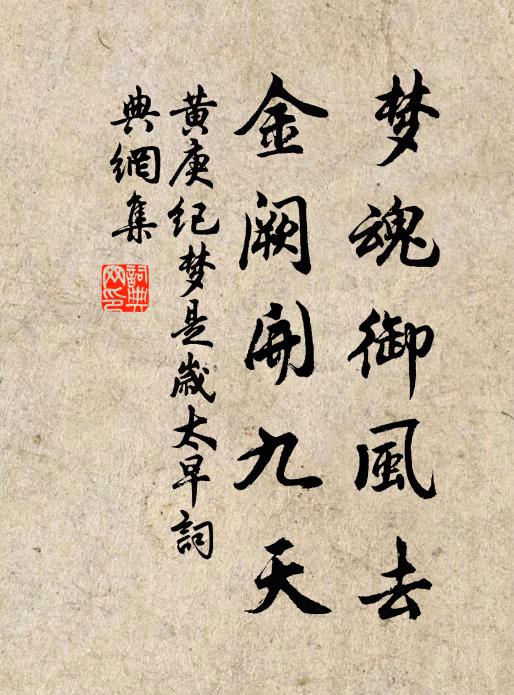 梦魂御風去
金阙開九天
黄庚纪梦是歲太早詞
典網集
詞典
网印